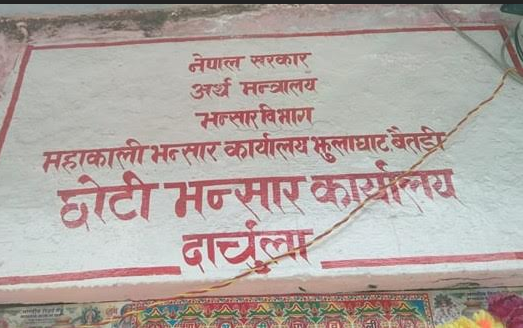 नेपाल सरकार
अर्थ मन्त्रालय
भन्सार विभाग
महाकाली भन्सार कार्यालय झुलाघाट बैतडी
छोटी भन्सार कार्यालय
दार्चुला